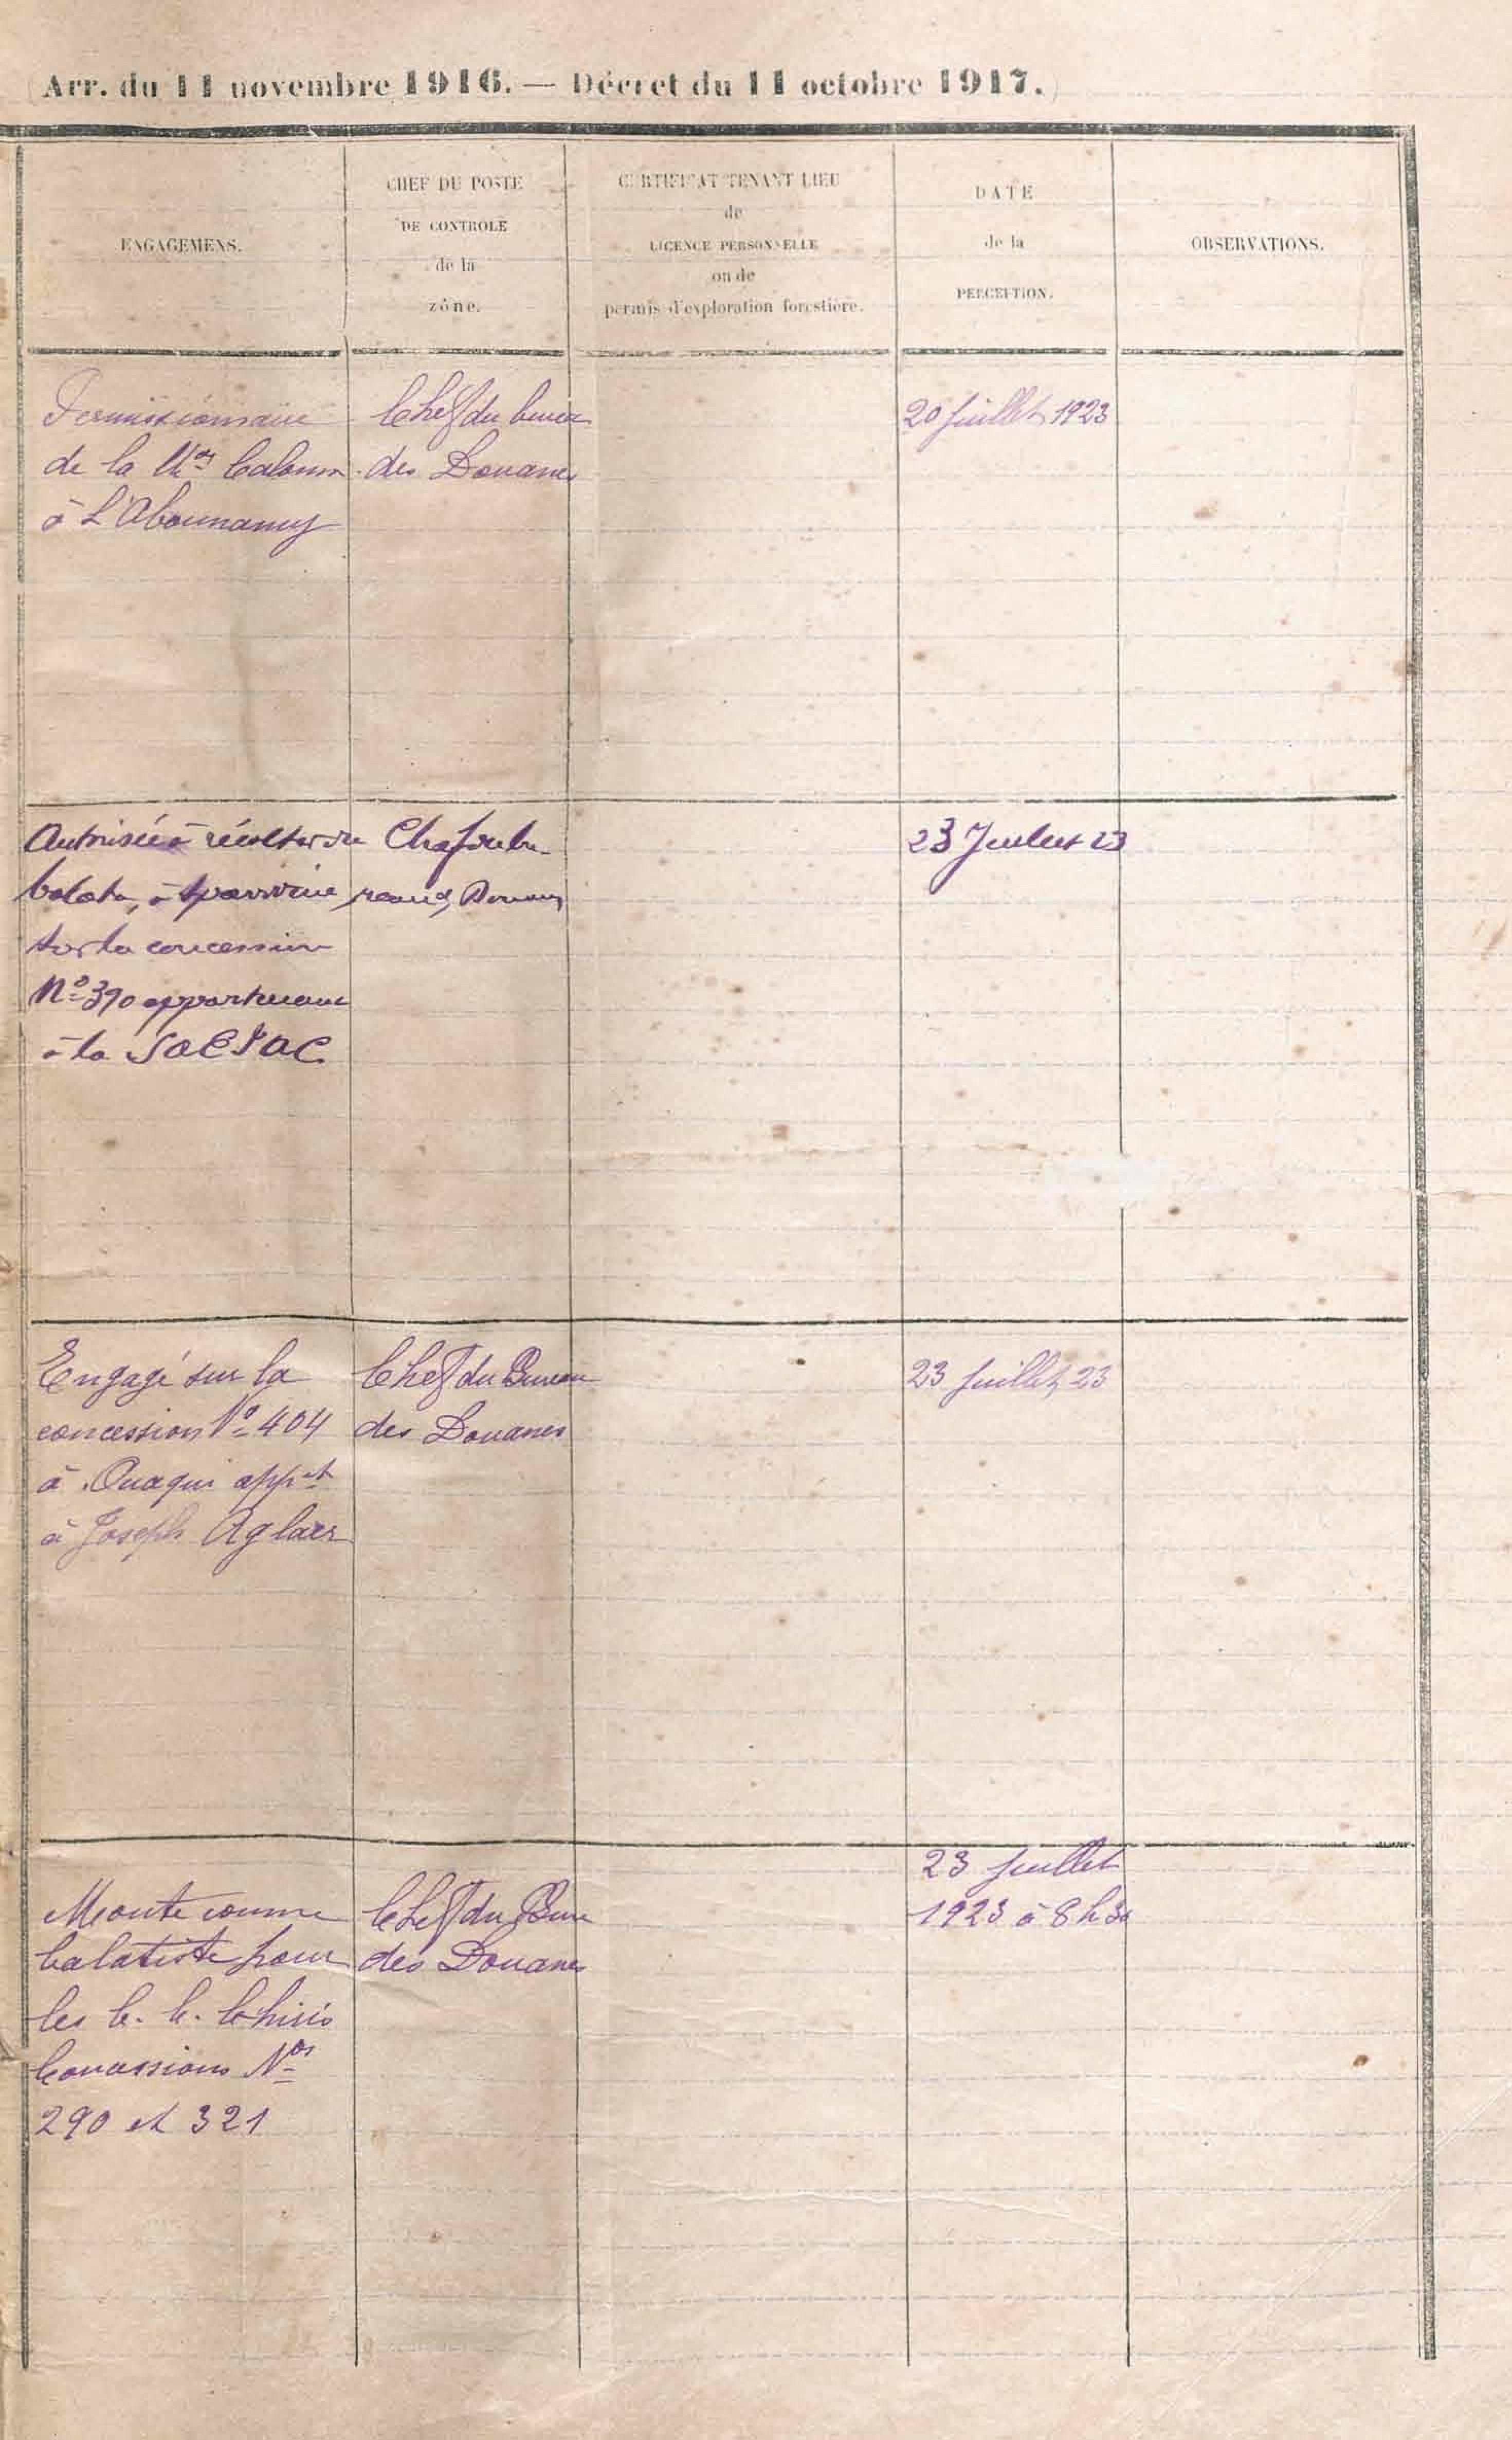 (Arr. du 11 novembre 1916. — Décret du 11 octobre 1917.)
ENGAGEMENS.
CHEF DU POSTE
DE CONTROLE
de la
zône.
CERTIFICAT TENANT LIEU
de
LICENCE PERSONNELLE
ou de
permis d'exploration forestière.
DATE
de la
PERCEPTION.
OBSERVATIONS.
Permissionnaire
de la
à L'Abounamy
Chef du bureau
des Douanes
20 Juillet 1923
Autorisé à récolter du
balata, à Sparwine
sur la concession
N° 390 appartenant
à la
Chef du bu-
reau des Douanes
23 Juillet 23
Engagé sur la
concession N° 404
à Ouaqui appt
à Joseph Aglaer
Chef du Bureau
des Douanes
23 Juillet 23
Monte comme
balatiste pour
les Chiris
Concessions Nos
290 et 321
Chef du Bure
des Douanes
23 Juillet
1923 à 8h30